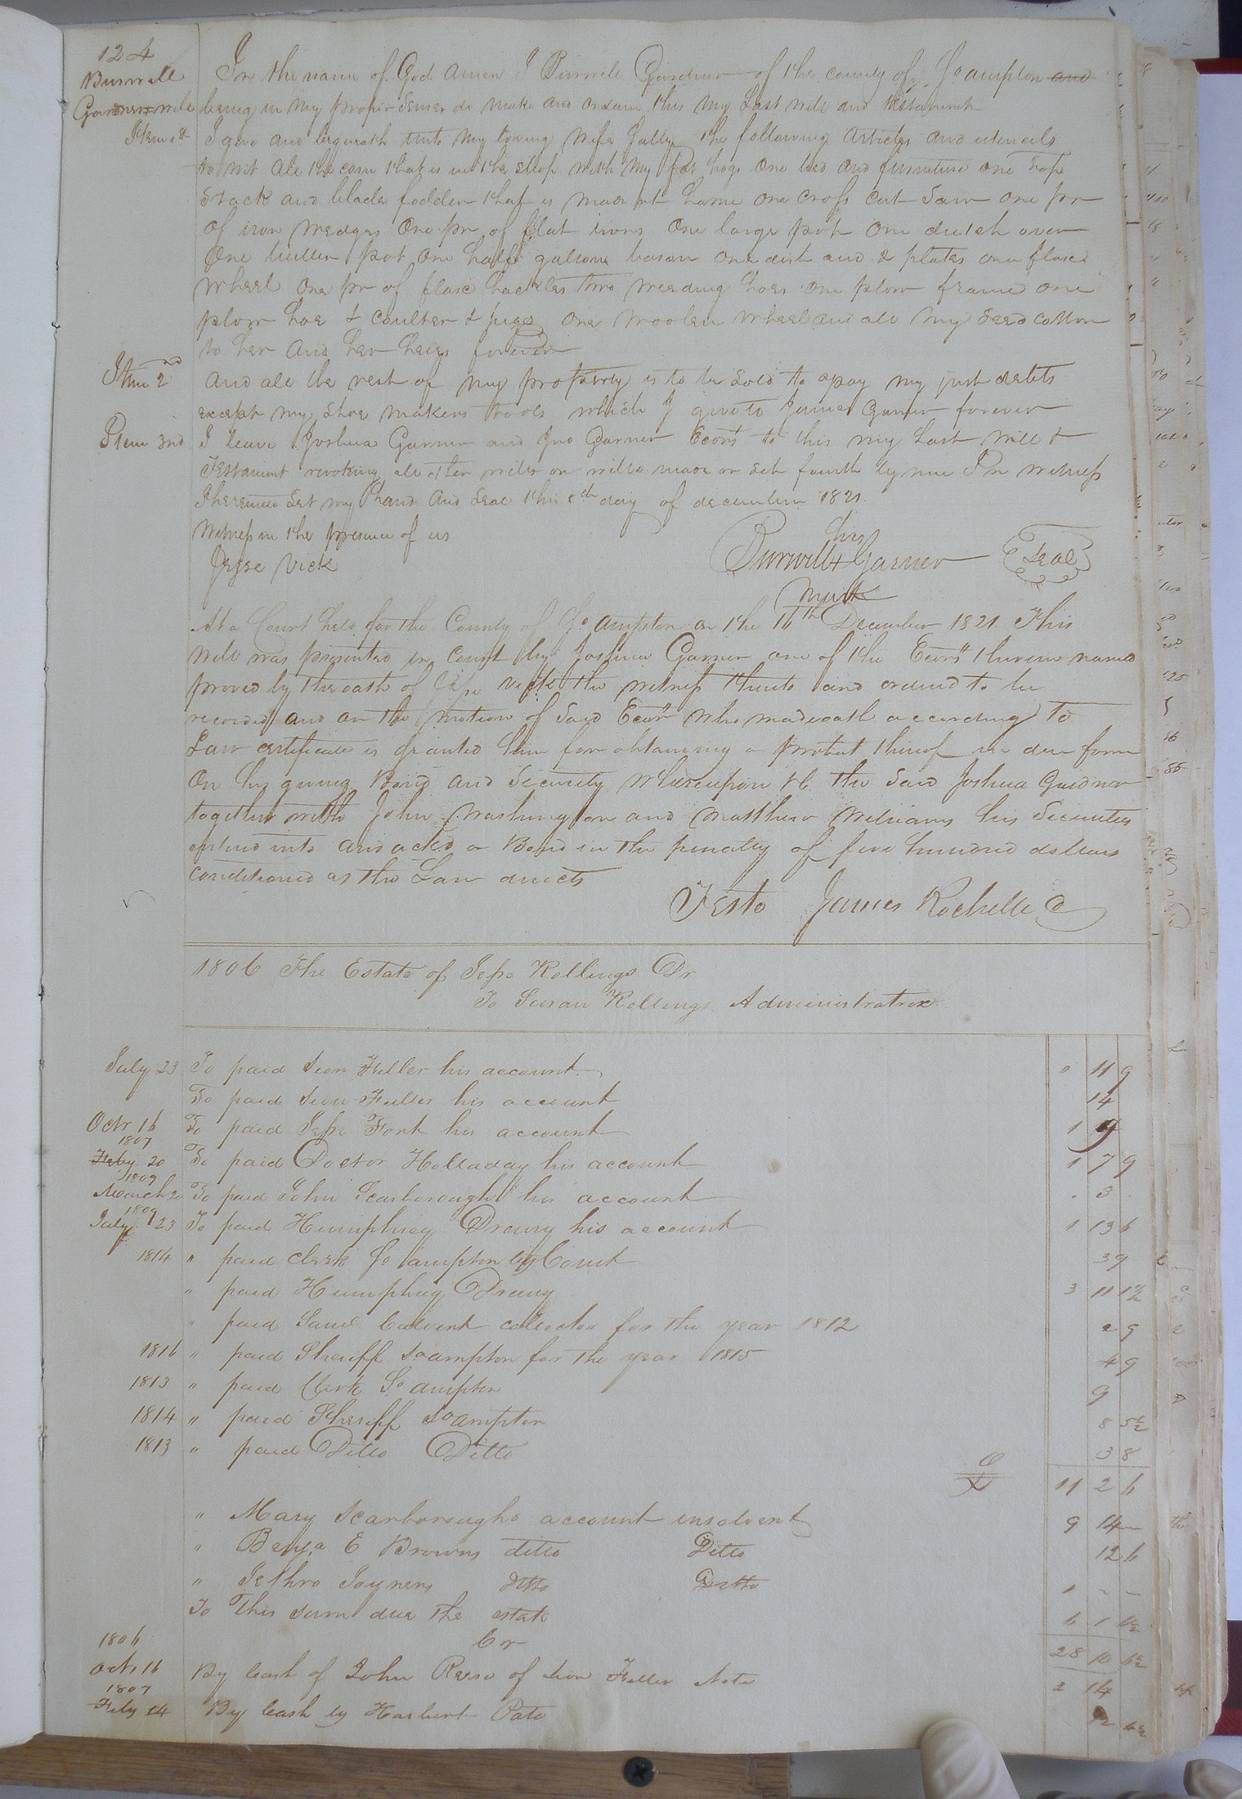 124
Burwell Garners will
In the name of God Amen I Burwell Gardner of the county of So ampton and
being in my proper senses do make and ordain this my Last will and testament
Item 1st I give and bequeath unto my loving wife Sally the following articles and utencils
to wit all the corn that is in the shop with my fat hogs one bed and furniture one
Stack and blade fodder that is made at home one cross cut saw one pr
of iron wedges one pr of flat irons one large pot one dutch oven
One small pot one half gallone bason one dish and 2 plates one flax
wheel one pr of flax hackles two weeding hoes one plow frame one
plow hoe & coulter & pigs one woolen wheel and all my seed cotton
to her and her heirs forever
Item 2nd And all the rest of my property is to be sold to apay my just debts
except my shoe makers tools which I give to James Garner forever
Item 3rd I leave Joshua Garner and Jno Garner Ecors to this my Last will &
Testament revoking all other wills or wills made or set fourth by me In witness
I hereunto set my Hand and Seal this 5th day of december 1821
Witness in the presence of us
Jesse Vick
his
Burwell + Garner Seal
mark
At a Court held for the County of So ampton on the 16th December 1821 This
will was presented in Court by Joshua Garner one of the Ecors therein named
proved by the oath of Jesse Vick the witness thereto and ordered to be
recorded and on the motion of said Ecor who made oath according to
Law certificate is granted him for obtaining a probat thereof in due form
On his giving Bond and Security whereupon he the said Joshua Gardner
together with John Washington and Matthew Williams his Securities
entered into and acknd a Bond in the penalty of five hundred dollars
conditioned as the Law directs
Teste James Rochelle C
1806 The Estate of Jesse Kollings Dr
To Susan Kollings Administratrix
July 23 To paid Sion Fuller his account " 11 9
To paid Sion Fuller his account 14
Octr 16 To paid Jesse Fort his account 1 9
1807
Feby 20 To paid Doctor Holladay his account 1 7 9
1809
March 20 To paid John Scarborough his account . 3
1809
July 23 To paid Humphrey Drewry his account 1 13 6
1814 " paid clerk So ampton Cy Court 3 9
" paid Humphrey Drewry 3 11 1½
" paid Saml Calvert collector for the year 1812 2 9
1816 " paid Sheriff So ampton for the year 1815 4 9
1813 " paid Clerk So ampton 9
1814 " paid Sheriff So ampton 8 5½
1813 " paid Ditto Ditto 3 8
11 2 6
" Mary Scarboroughs account insolvent 9 14 –
" Benja E Browns ditto Ditto 12 6
" Jethro Joyners ditto Ditto 1 – –
To This sum due the estate 6 1 6½
Cr 28 10 6½
1806
Octr 16 By Cash of John Reese of Sion Fuller Note 2 14
1807
Feby 14 By Cash by Harburt Pate 12 6½